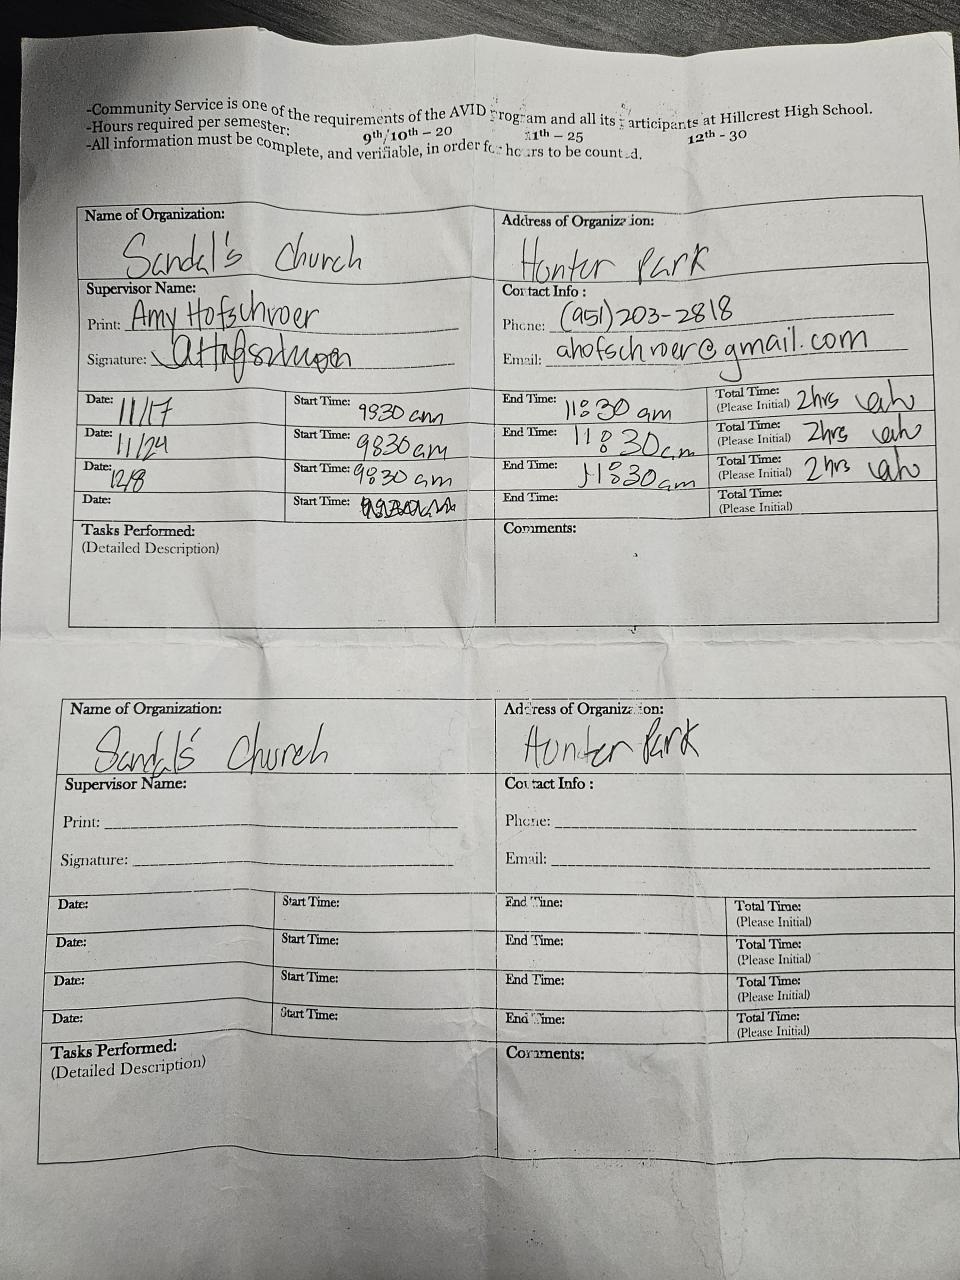 -Community Service is one of the requirements of the AVID Program and all its participants at Hillcrest High School.
-Hours required per semester: 9th/10th – 20 11th – 25 12th - 30
-All information must be complete, and verifiable, in order for hours to be counted.
Name of Organization: Address of Organization:
Sandal's Church Hunter Park
Supervisor Name: Contact Info :
Print: Amy Hofschroer Phone: (951)203-2818
Signature: Email: ahofschroer@gmail.com
Date: 11/17 Start Time: 9:30 am End Time: 11:30 am Total Time: 2hrs ah
(Please Initial)
Date: 11/24 Start Time: 9:30am End Time: 11:30am Total Time: 2hrs ah
(Please Initial)
Date: 12/8 Start Time: 9:30 am End Time: 11:30am Total Time: 2hrs ah
(Please Initial)
Date: Start Time: End Time: Total Time:
(Please Initial)
Tasks Performed: Comments:
(Detailed Description)
Name of Organization: Address of Organization:
Sandal's Church Hunter Park
Supervisor Name: Contact Info :
Print: Phone:
Signature: Email:
Date: Start Time: End Time: Total Time:
(Please Initial)
Date: Start Time: End Time: Total Time:
(Please Initial)
Date: Start Time: End Time: Total Time:
(Please Initial)
Date: Start Time: End Time: Total Time:
(Please Initial)
Tasks Performed: Comments:
(Detailed Description)